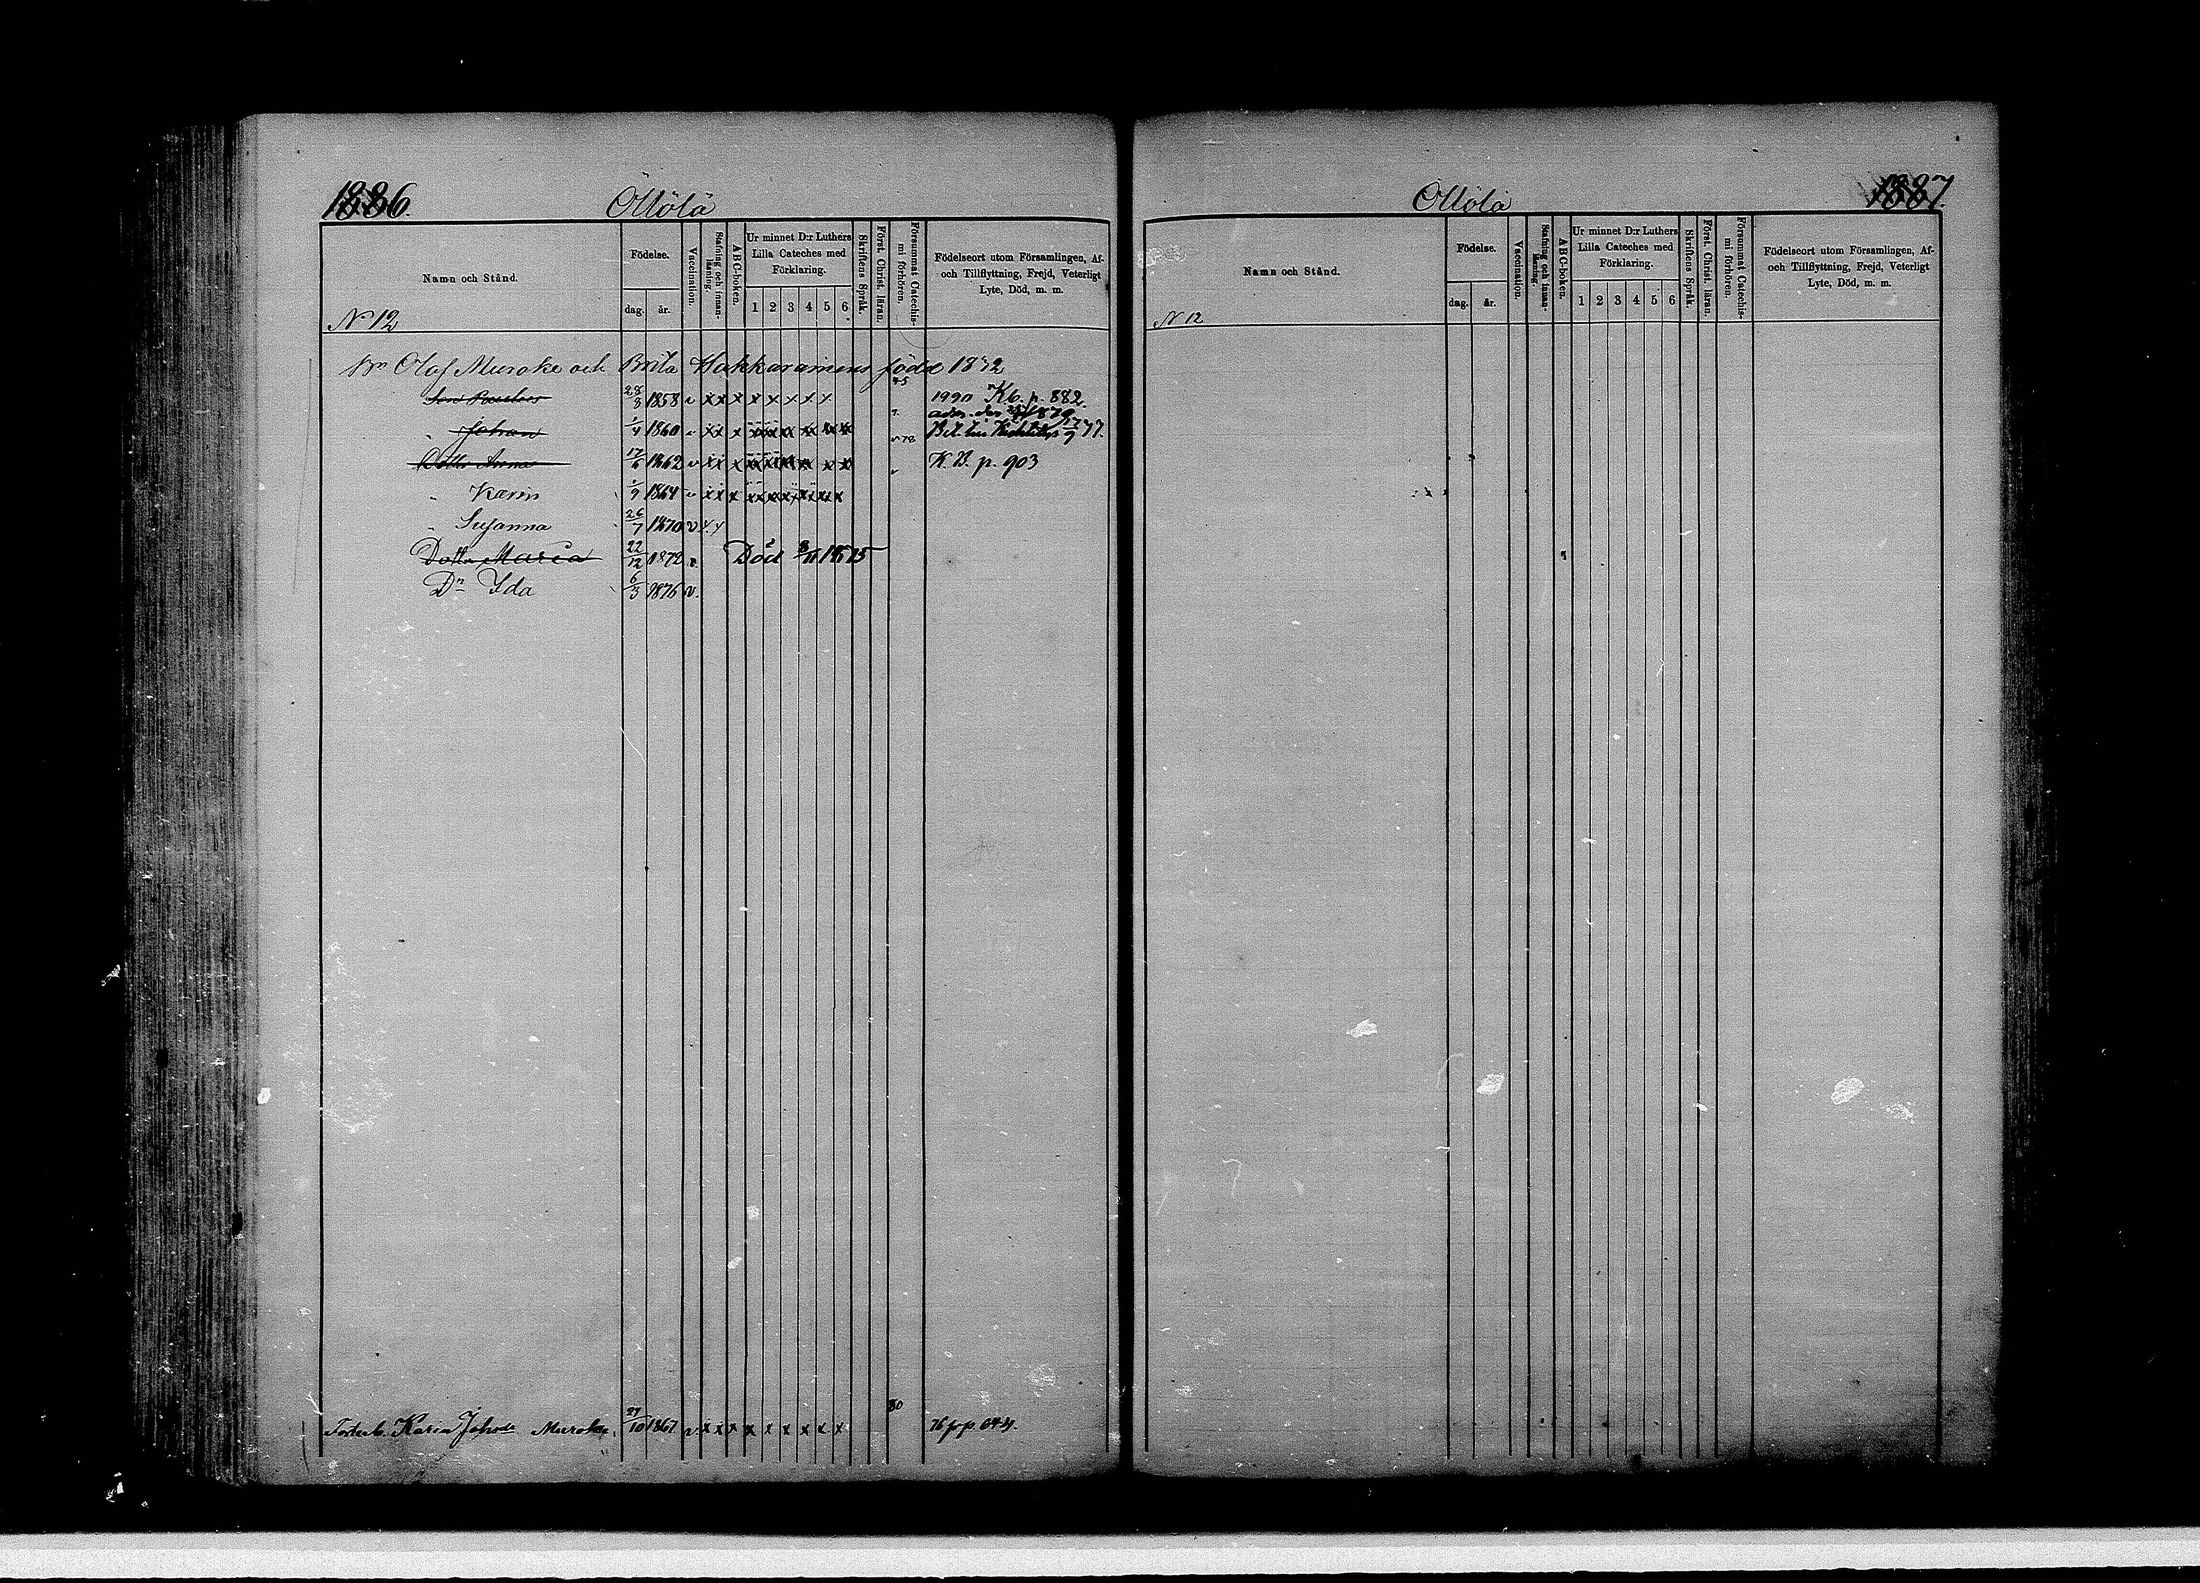 1886.
Ollölä
Namn och Stånd.
Födelse.
dag. år.
Vaccination.
Stafning och innanläsning.
ABC-boken.
Ur minnet D:r Luthers Lilla Cateches med Förklaring.
1 2 3 4 5 6
Skriftens Språk.
Först. Christ. läran.
Försummat Catechismi förhören.
Födelseort utom Församlingen, Af- och Tillflyttning, Frejd, Veterligt Lyte, Död, m. m.
N 12
Olof Muroke och Brita Hakkarainens född
Son 28/3 1858 v x x x x x x x x 75 1990 Kb. p. 882.
" Johan 1/4 1860 v x x x
Dottr Anna 17/6 1862 v x x x K. B. p. 903
" Karin 1/9 1864 v x x x
" Susanna 26/7 1870 v x x
Dottr Maria 22/12 1872 v Död 1875
Dr Ida 6/3 1876 v.
Karin Johsdr Muroke, 27/10 1867 v x x x x x x x x x 80
Ollölä
1887.
Namn och Stånd.
Födelse.
dag. år.
Vaccination.
Stafning och innanläsning.
ABC-boken.
Ur minnet D:r Luthers Lilla Cateches med Förklaring.
1 2 3 4 5 6
Skriftens Språk.
Först. Christ. läran.
Försummat Catechismi förhören.
Födelseort utom Församlingen, Af- och Tillflyttning, Frejd, Veterligt Lyte, Död, m. m.
N 12